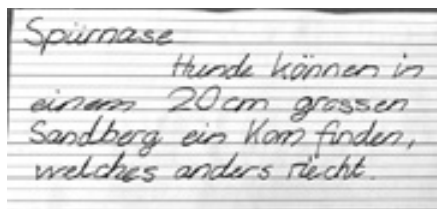 Spürnase
Hunde können in
einem 20cm grossen
Sandberg ein Korn finden,
welches anders riecht.